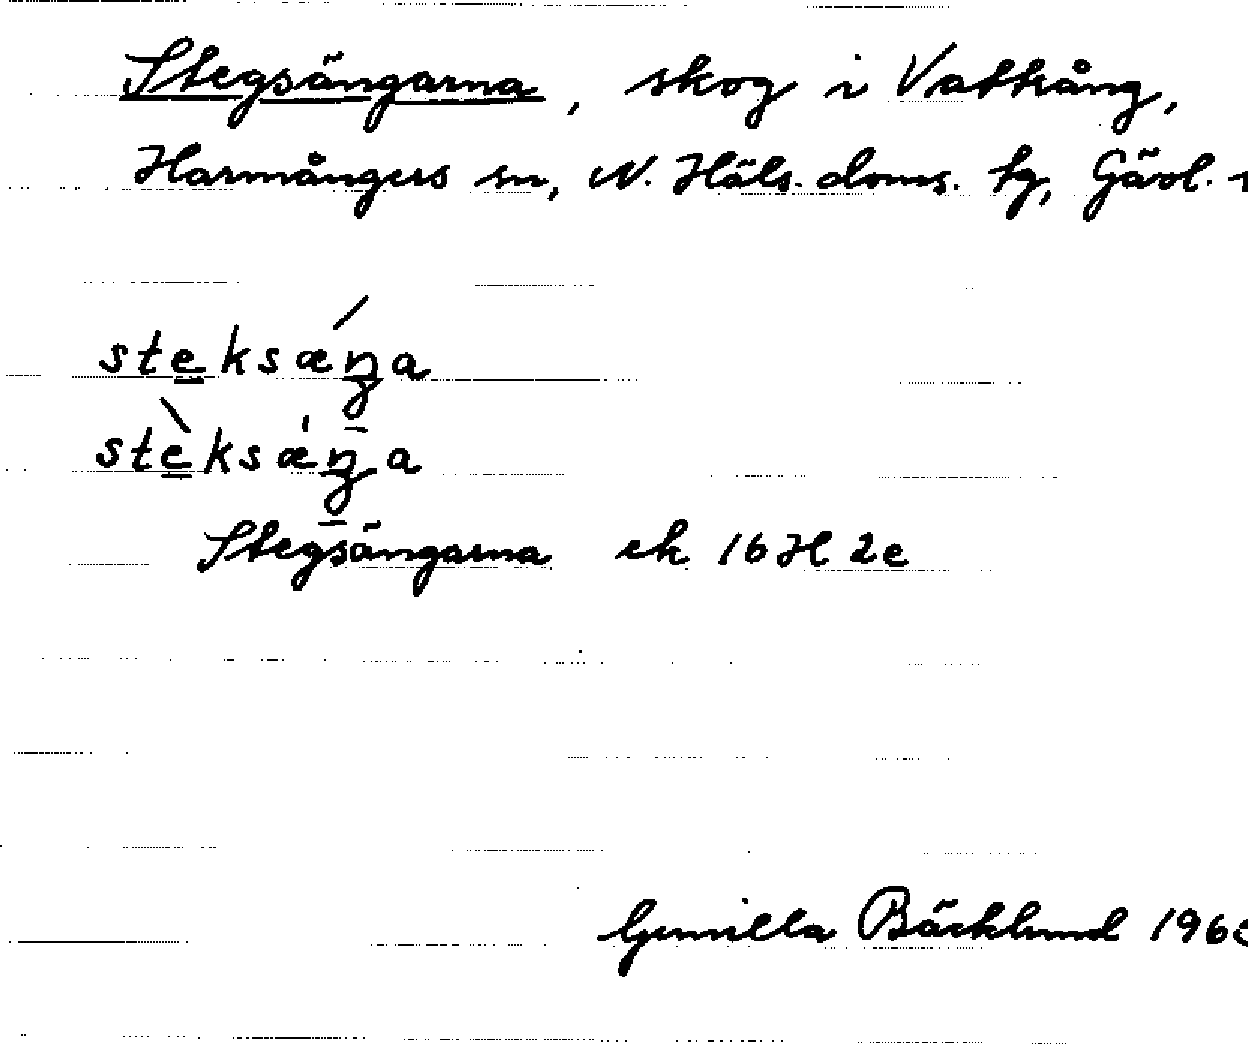 Stegsängarna, skog i Vattrång,
Harmångers sn, N. Häls. doms. tg, Gävl.
steksǽŋa
stèksǽŋa
Stegsängarna ek 16H 2e
Gunilla Bäcklund